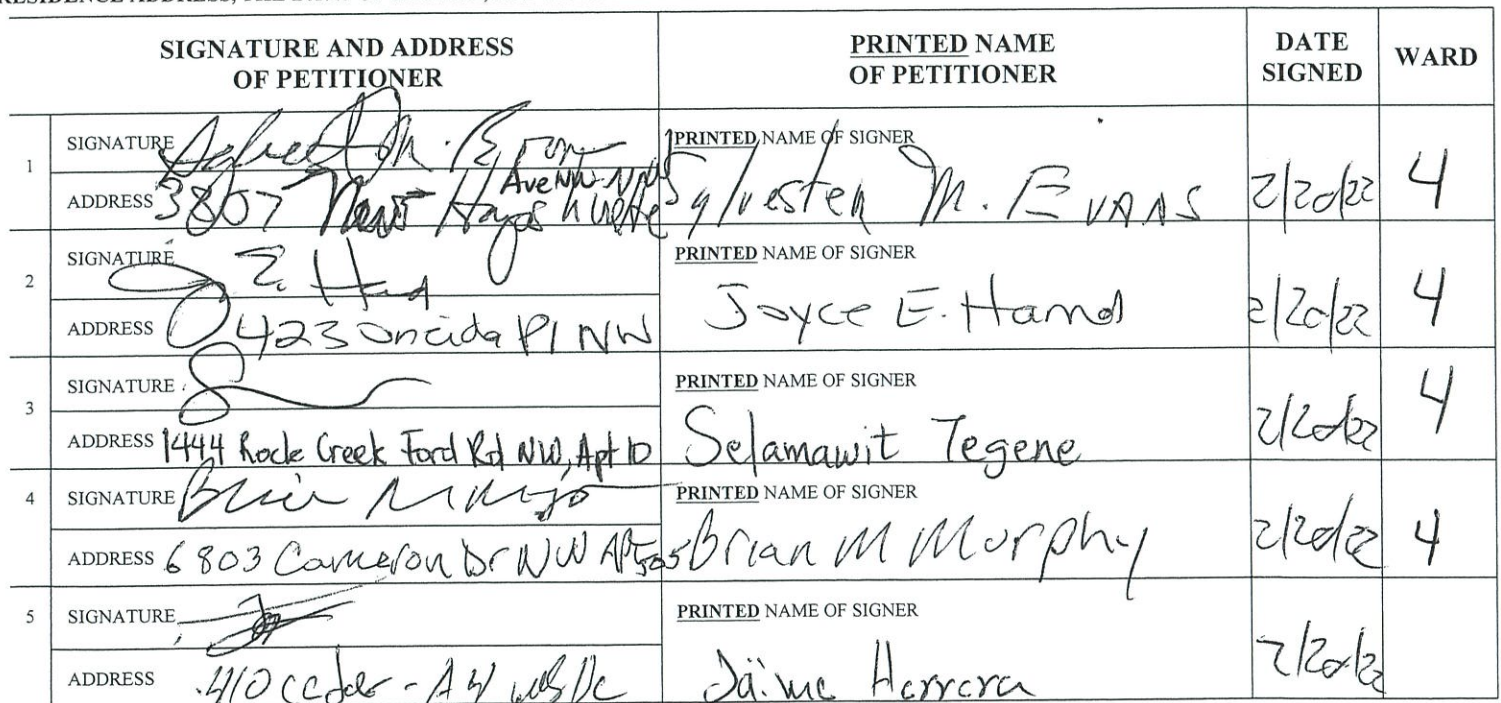 SIGNATURE AND ADDRESS
OF PETITIONER
PRINTED NAME
OF PETITIONER
DATE
SIGNED
WARD
1
SIGNATURE
ADDRESS 3807 New Ave NW
PRINTED NAME OF SIGNER
Sylvester M. EVANS
2/20/22
4
2
SIGNATURE J E. Hand
ADDRESS 423 Oneida Pl NW
PRINTED NAME OF SIGNER
Joyce E. Hand
2/20/22
4
3
SIGNATURE
ADDRESS 1444 Rock Creek Ford Rd NW, Apt 10
PRINTED NAME OF SIGNER
Selamawit Tegene
2/20/22
4
4
SIGNATURE
ADDRESS 6803 Cameron Dr NW APT 505
PRINTED NAME OF SIGNER
Brian M Murphy
2/20/22
4
5
SIGNATURE
ADDRESS 410 DC
PRINTED NAME OF SIGNER
Jaime Herrera
2/20/22